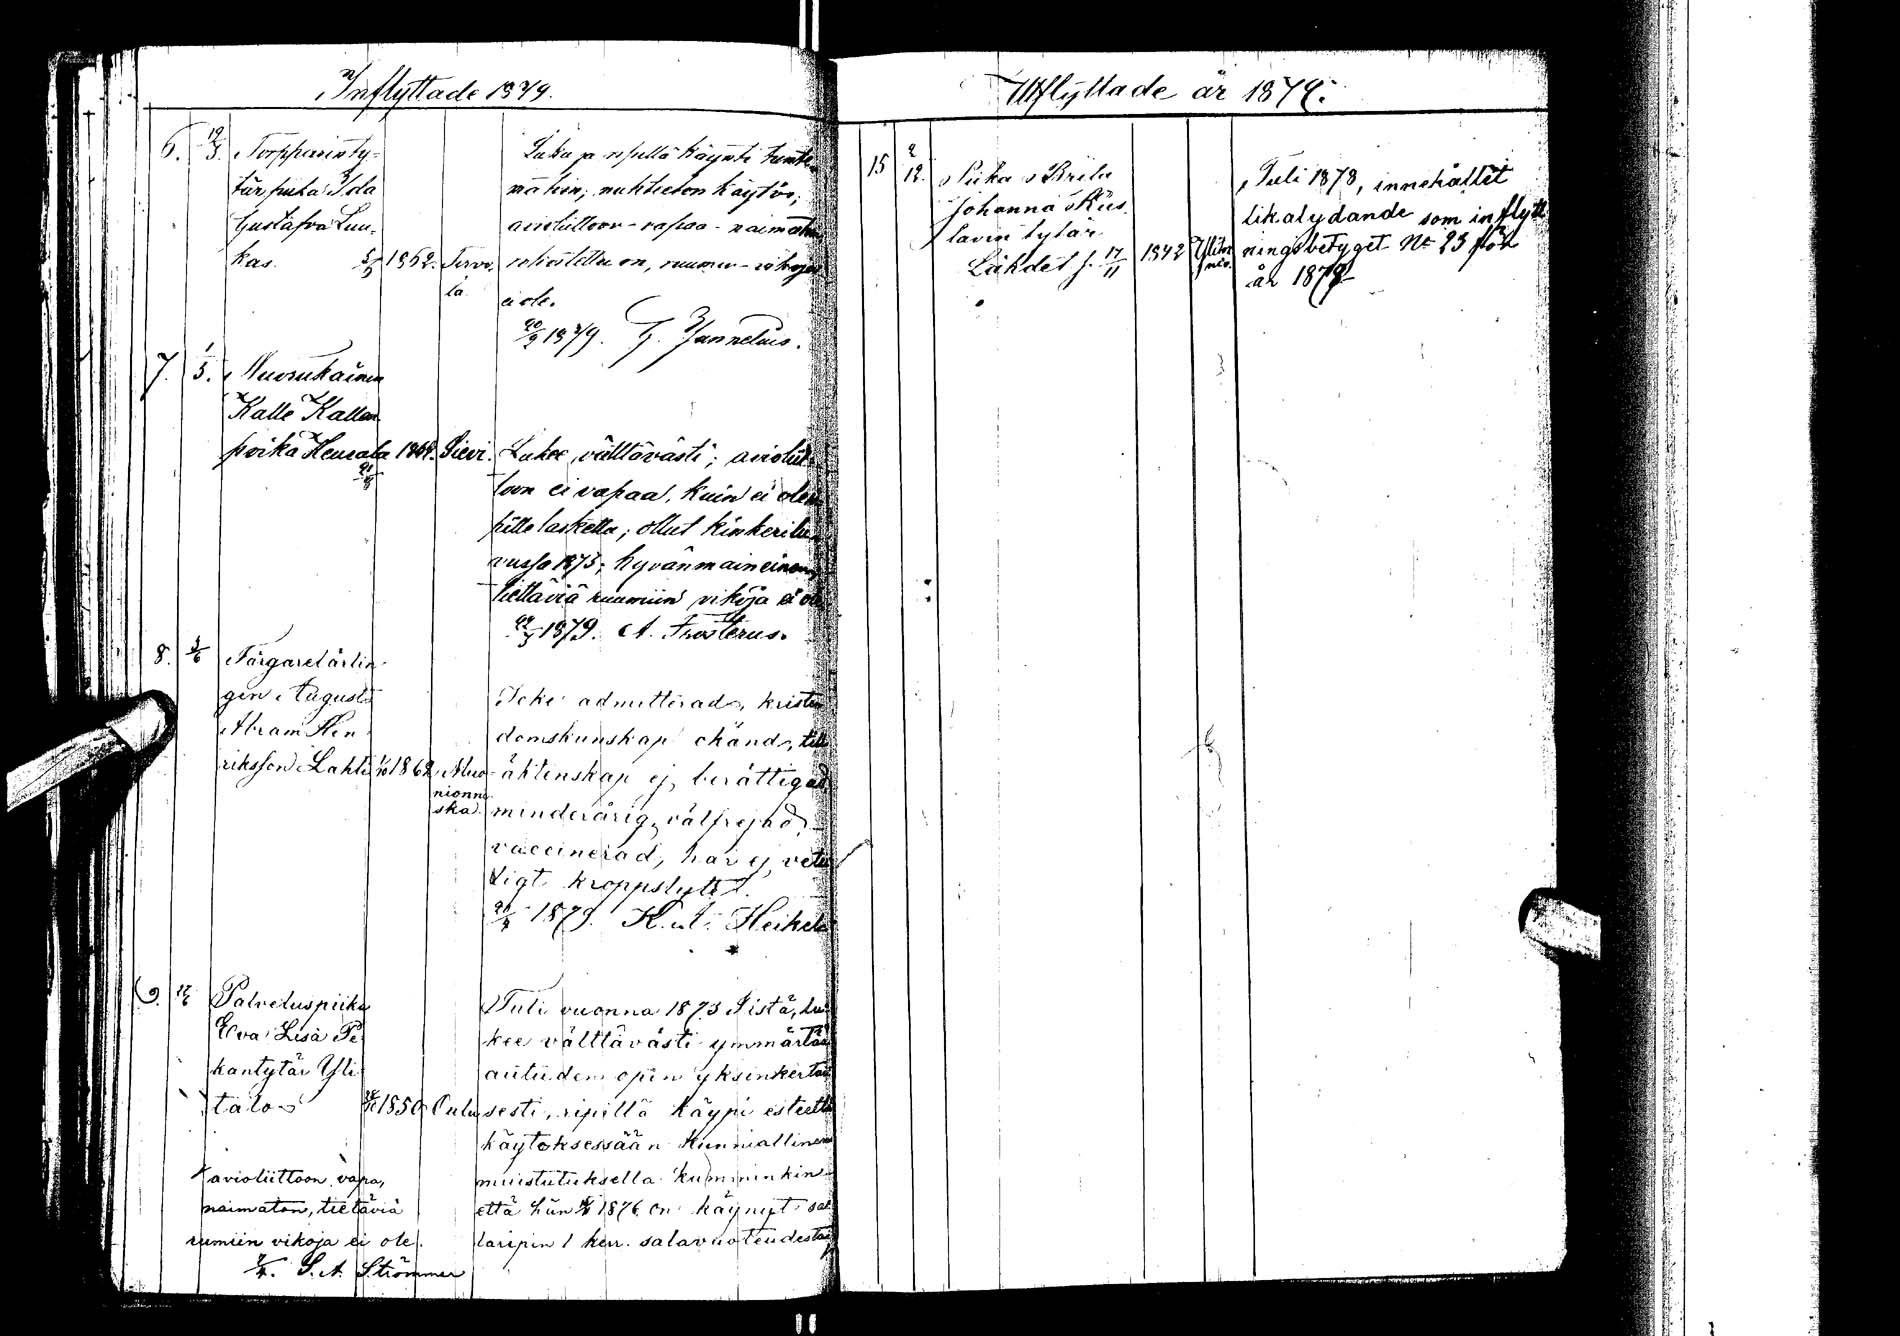 Inflyttade 1879.
6. 19/3. Torpparinty-
tär piika Ida
Gustafva Luu-
kas. 5/5 1862. Tervo-
la
Luku ja ripillä käynti tunte-
matoin; nuhteeton käytös;
avioliittoon vapaa - naimaton
rokostettu on, ruumin vikoja
ei ole.
20/2 1879. G. Zannelius.
7. 1/5. Nuorukainen
Kalle Kallen
poika Heusala 1864. Sievi.
Lukee välttävästi; avioliit-
toon ei vapaa, kuin ei ole ri-
pille laskettu; ollut kinkerilu-
vussa 1875; hyvänmaineinen
tiettäviä ruumiin vikoja ei ole
1879. A. Frosterus.
8. 3/6 Färgarelärlin-
gen August
Abram Hen-
riksson Lahti 1/10 1862 Muo-
nionni-
ska
Icke admitterad, kristen-
domskunskap okänd, till
äktenskap ej berättigad,
minderårig, välfrejdad,
vaccinerad, har ej vete-
ligt kroppslyte.
1879. K. A. Heikel
9. 17/6 Palveluspiika
Eva Lisa Pe-
kantytär Yli-
talo 1850 Oulu
Tuli vuonna 1873 Iistä, lu-
kee välttävästi ymmärtää
autuuden opin yksinkertai-
sesti, ripillä käypi esteettä
käytöksessään kunniallinen
muistutuksella kumminkin
että hän 1876 on käynyt sa-
laripin 1 kerr. salavuoteudesta
avioliittoon vapa,
naimaton, tietäviä
rumiin vikoja ei ole.
S. A. Strömmer
Utflyttade år 1879.
15 2/12. Piika Brita
Johanna Kus
lavin tytär
Lähdet f. 17/11 1842 Ylitor-
nio.
Tuli 1878, innehållet
likalydande som inflytt
ningsbetyget No 23 för
år 1878